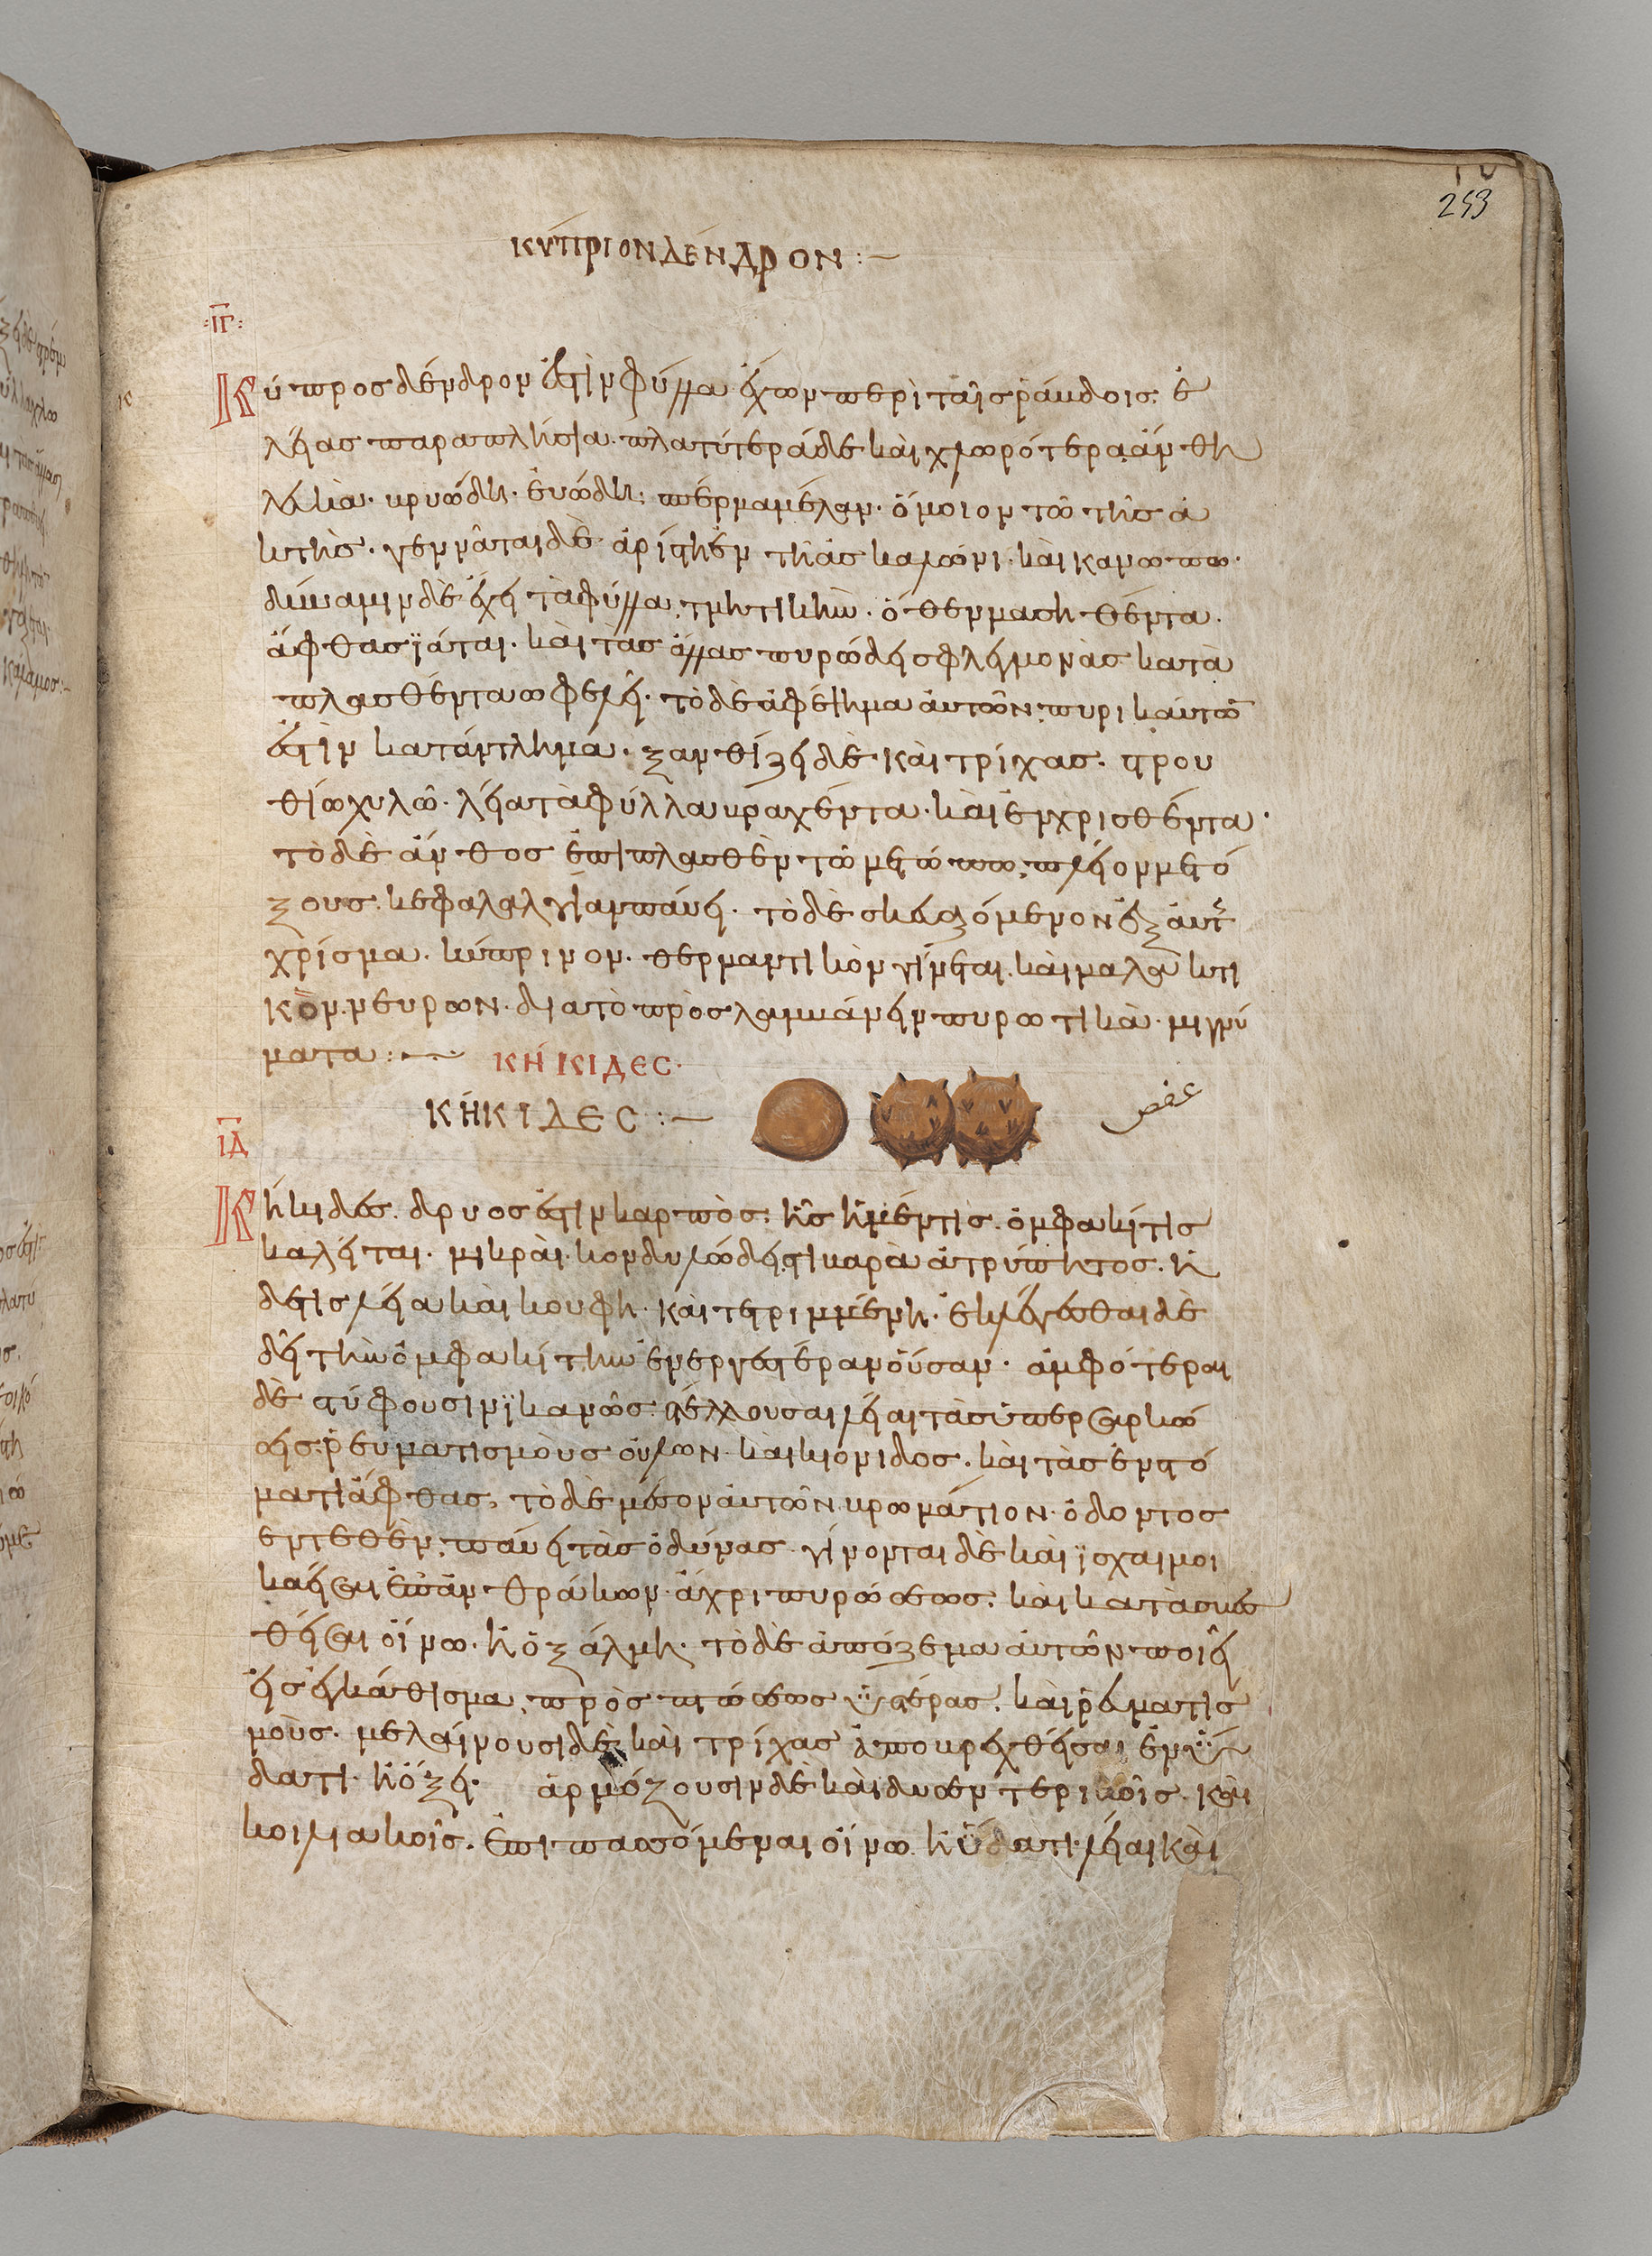 253
ΚΥΠΡΙΟΝ ΔΕΝΔΡΟΝ :—
·ΙΓ·
Κύπρος δένδρον ἐστὶν φύλλα ἔχων περὶ ταῖς ράμδοις· ἐ
λέας παραπλήσια· πλατύτερα δὲ καὶ χλωρότερα ἄνθη
λευκὰ· κρυώδη· ἐυώδη· σπέρμα μέλαν· ὅμοιον τῶ τῆς ἀ
κτῆς· γεννᾶται δὲ ἀρίστη ἐν τῆ ἀσκαλώνι· καὶ κανώπω·
δύναμιν δὲ ἔχει τὰ φύλλα τμητικὴν· ὅθεν μασηθέντα·
ἄφθας ϊάται· καὶ τὰς ἄλλας πυρώδεις φλεγμονὰς κατα
πλασθέντα ωφελεῖ· τὸ δὲ ἀφέψημα ἀυτῶν πυρικάυτῶ
ἐστὶν κατάντλημα· ξανθίζει δὲ καὶ τρίχας· στρου
θίω χυλῶ· λεῖα τὰ φύλλα βραχέντα· καὶ ἐνχρισθέντα·
τὸ δὲ ἄνθος ἐπιπλασθὲν τῶ μετώπω· πλεῖον μετό
ξους· κεφαλαλγίαν παύει· τὸ δὲ σκευαζόμενον ἐξ ἀυτ
χρίσμα· κύπρινον· θερμαντικὸν γίνεται· καὶ μαλακτι
κὸν νευρων· διατὸ πρὸσλαμβάνειν πυρωτικὰ· μιγμύ
ματα :—
ΚΗΚΙΔΕΣ·
ΚΗΚΙΔΕΣ :—
عفص
ΙΔ
Κήκιδες· δρυος ἐστὶν καρπὸς· ἧς ἡ μέντις· ὀμφακίτις
καλεῖται· μικρὰ· κονδυλώδης στιβαρὰ ἀτρύπητος· ἡ
δετις λεία καὶ κουφη· καὶ τετριμμένη· εκλέγεσθαι δὲ
δεῖ τὴν ὀμφακίτην ενεργεστέραν οὖσαν· ἀμφότεραι
δὲ στύφουσιν ϊκανῶς· στέλλουσαι λεῖαι τὰς ὑπερσαρκώ
σεις· ρευματισμὸυς ὀύλων καὶ κιόνιδος· καὶ τὰς ἐν στό
ματι ἄφθας· τὸ δὲ μέσον ἀυτῶν κρωμάτιον ὀδοντος
εντεθὲν· παύει τὰς ὀδύνας· γίνονται δὲ καὶ ϊσχαιμοι
καεῖσαι ἐπ' ἀνθράκων ἄχρι πυρώσεως· καὶ κατασβε
θεῖσαι οἴνω· ἢ ὀξάλμη· τὸ δὲ ἀπόζεμα ἀυτῶν ποιεῖ
εἰς ἐγκάθισμα πρὸς πτώσεως ϋστέρας· καὶ ρευματισ
μοὺς· μελαίνουσι δὲ καὶ τρίχας ἀποβρεχθεῖσαι ἐν ϋ
δατι ἢ ὄξει· ἁρμόζουσιν δὲ καὶ δυσεντερικοῖς· καὶ
κοιλιακοῖς· ἐπιπασσόμεναι οἴνω ἢ ὕδατι λεῖαι καὶ